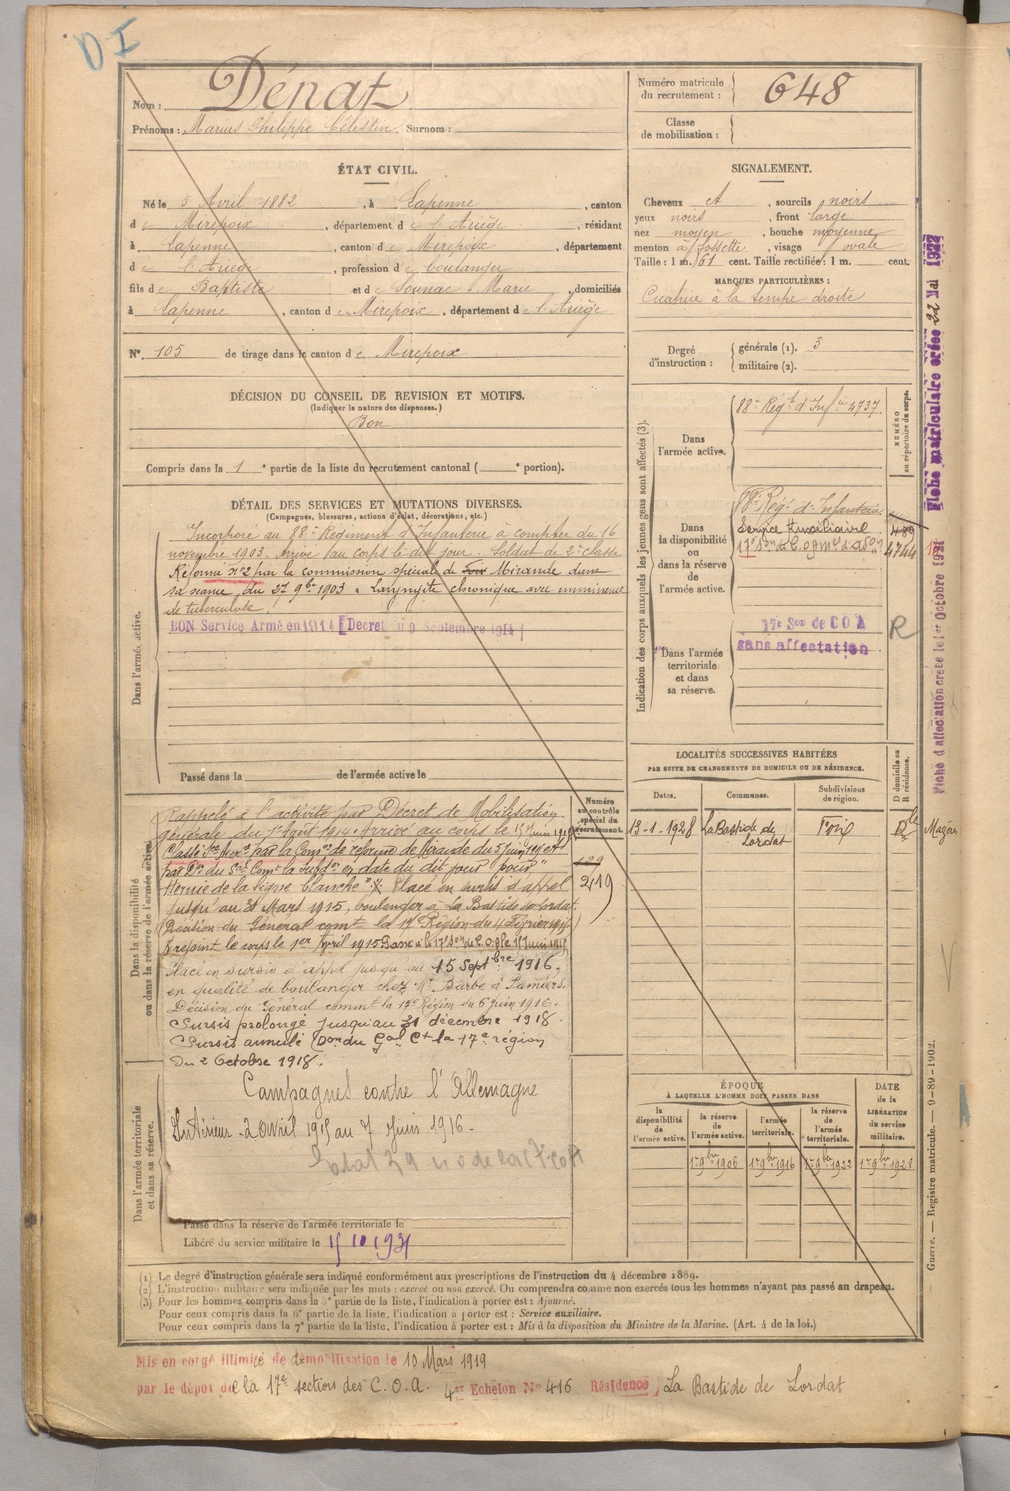 D I
Nom : Dénat
Prénoms : Marius Philippe Célestin Surnom :
Numéro matricule du recrutement : 648
Classe de mobilisation :
ÉTAT CIVIL.
Né le 5 Avril 1882, à Lapenne, canton
de Mirepoix, département de l'Ariège, résidant
à Lapenne, canton de Mirepoix, département
de l'Ariège, profession de boulanger
fils de Baptiste et de Sounac Marie, domiciliés
à Lapenne, canton de Mirepoix, département de l'Ariège
N° 105 de tirage dans le canton de Mirepoix
SIGNALEMENT.
Cheveux et, sourcils noirs
yeux noirs, front large
nez moyen, bouche moyenne
menton à fossette, visage ovale
Taille : 1 m. 61 cent. Taille rectifiée : 1 m. cent.
MARQUES PARTICULIÈRES :
Cicatrice à la tempe droite
Degré d'instruction : générale (1). 3
militaire (2).
DÉCISION DU CONSEIL DE REVISION ET MOTIFS.
(Indiquer la nature des dispenses.)
Bon
Compris dans la 1e partie de la liste du recrutement cantonal ( e portion).
DÉTAIL DES SERVICES ET MUTATIONS DIVERSES.
(Campagnes, blessures, actions d'éclat, décorations, etc.)
Dans l'armée active.
Incorporé au 88e Régiment d'Infanterie à compter du 16
novembre 1903. Arrivé au corps le dit jour. Soldat de 2e classe
Réformé n°2 par la commission spéciale de Foix Mirande dans
sa séance du 27 9bre 1903 Laryngite chronique avec imminence
de tuberculose.
BON Service Armé en 1914 [Décret du 9 Septembre 1914]
Passé dans la de l'armée active le
Indication des corps auxquels les jeunes gens sont affectés (3).
Dans l'armée active.
88e Régt d'Infie 4737
NUMÉRO au répertoire du corps.
Dans la disponibilité ou dans la réserve de l'armée active.
Régt d'Infanterie
Service Auxiliaire
4744
Dans l'armée territoriale et dans sa réserve.
17e Son de COA
sans affectation
R
LOCALITÉS SUCCESSIVES HABITÉES
PAR SUITE DE CHANGEMENTS DE DOMICILE OU DE RÉSIDENCE.
Dates. Communes. Subdivisions de région. D domicile ou R résidence.
13-1-1928 La Bastide de Lordat Foix D
Dans la disponibilité ou dans la réserve de l'armée active.
Numéro au contrôle spécial du recrutement.
129
2419
Rappelé à l'activité par Décret de Mobilisation
générale du 1er Août 1914. Arrivé au corps le
Classé Sce Auxre par la Comon de réforme de Mirande du 5 juin
par Don du Gal Comt la Subdon en date du dit jour pour
Hernie de la ligne blanche". Placé en sursis d'appel
jusqu'au 31 Mars 1915, boulanger à La Bastide de Lordat
Décision du Général comt la 17e Région du 4 Février 1915
Rejoint le corps le 1er Avril 1915 Passé à la 17e Son de C.O.A le
Placé en sursis d'appel jusqu'au 15 Septbre 1916,
en qualité de boulanger chez Mr Barbe à Pamiers.
Décision du Général commt la 17e Région du 6 Juin 1916.
Sursis prolongé jusqu'au 31 décembre 1918.
Sursis annulé Don du Gal Ct la 17e région
du 2 Octobre 1918.
Dans l'armée territoriale et dans sa réserve.
Campagnes contre l'Allemagne
Intérieur - 2 avril 1915 au 7 Juin 1916 -
Passé dans la réserve de l'armée territoriale le
Libéré du service militaire le
ÉPOQUE
À LAQUELLE L'HOMME DOIT PASSER DANS
la disponibilité de l'armée active. la réserve de l'armée active. l'armée territoriale. la réserve de l'armée territoriale. DATE de la LIBÉRATION du service militaire.
1er 9bre 1906 1er 9bre 1916 1er 9bre 1922 1er 9bre 1928
(1) Le degré d'instruction générale sera indiqué conformément aux prescriptions de l'instruction du 4 décembre 1889.
(2) L'instruction militaire sera indiquée par les mots : exercé ou non exercé. On comprendra comme non exercés tous les hommes n'ayant pas passé au drapeau.
(3) Pour les hommes compris dans la 5e partie de la liste, l'indication à porter est : Ajourné.
Pour ceux compris dans la 6e partie de la liste, l'indication à porter est : Service auxiliaire.
Pour ceux compris dans la 7e partie de la liste, l'indication à porter est : Mis à la disposition du Ministre de la Marine. (Art. 4 de la loi.)
Mis en congé illimité de démobilisation le 10 Mars 1919
par le dépot de la 17e section des C.O.A. 4er Echelon N° 416 Résidence La Bastide de Lordat
Fiche matriculaire créée 22 Mai 1922
Fiche d'affectation créée le 1er Octobre 1921
Guerre. — Registre matricule. — 9-89-1902.